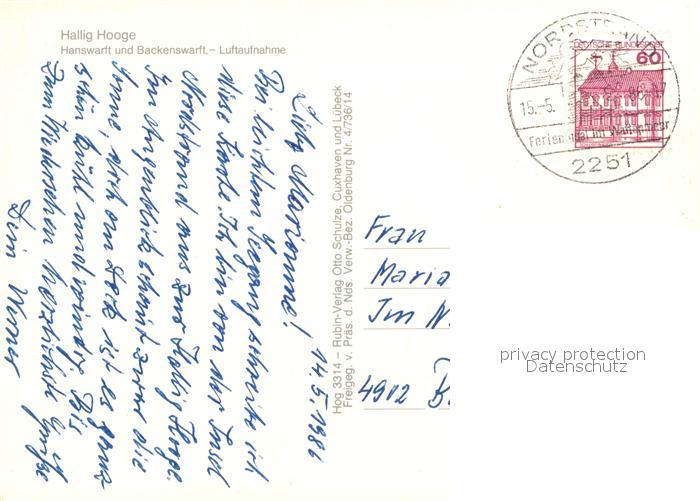 Hallig Hooge
Hanswarft und Backenswarft, – Luftaufnahme
14.5.1986
Liebe Marianne!
Bei leichtem Seegang schreibe ich
diese Karte. Ich bin von der Insel
Nordstrand aus zur Hallig Hooge.
Im Augenblick scheint zwar die
Sonne, doch an Deck ist es ganz
schön kühl und windig. Bis
zum Wiedersehen herzlichste Grüße
Dein Werner
Hog 3314 – Rubin-Verlag Otto Schulze, Cuxhaven und Lübeck
Freigeg. v. Präs. d. Nds. Verw.-Bez. Oldenburg Nr. 4/736/14
NORDSTRAND
DEUTSCHE BUNDESPOST
60
15.-5.
2251
Frau
Maria
Im N
4902 B
privacy protection
Datenschutz